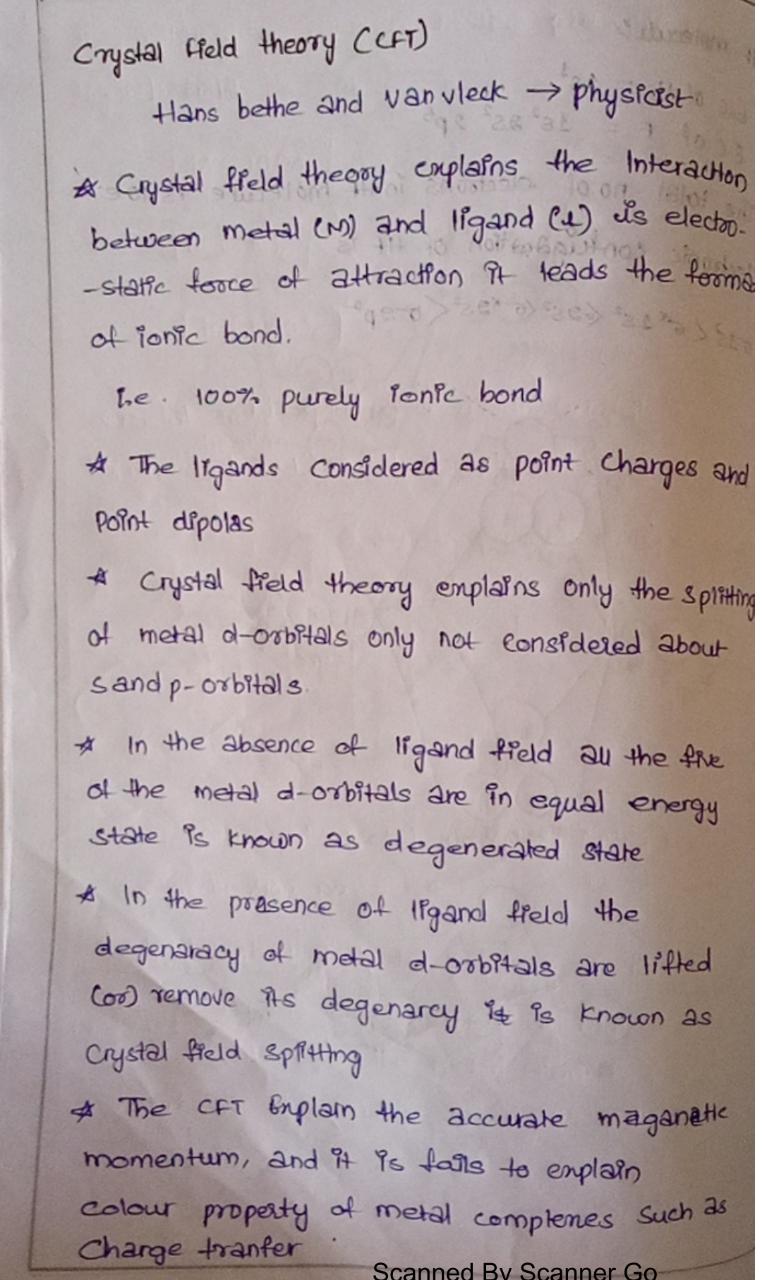 Crystal field theory (CFT)
Hans bethe and van vleck → physicist
☆ Crystal field theory explains the Interaction
between metal (M) and ligand (L) is electro-
-static force of attraction it leads the forma
of ionic bond.
I.e. 100% purely ionic bond
☆ The ligands considered as point charges and
point dipolas
☆ Crystal field theory explains only the splitting
of metal d-orbitals only not considered about
s and p-orbitals.
☆ In the absence of ligand field all the five
of the metal d-orbitals are in equal energy
state is known as degenerated state
☆ In the presence of ligand field the
degenaracy of metal d-orbitals are lifted
(or) remove its degenarcy it is known as
Crystal field splitting
☆ The CFT Explain the accurate maganetic
momentum, and it is fails to explain
colour property of metal complexes such as
Charge tranfer
Scanned By Scanner Go